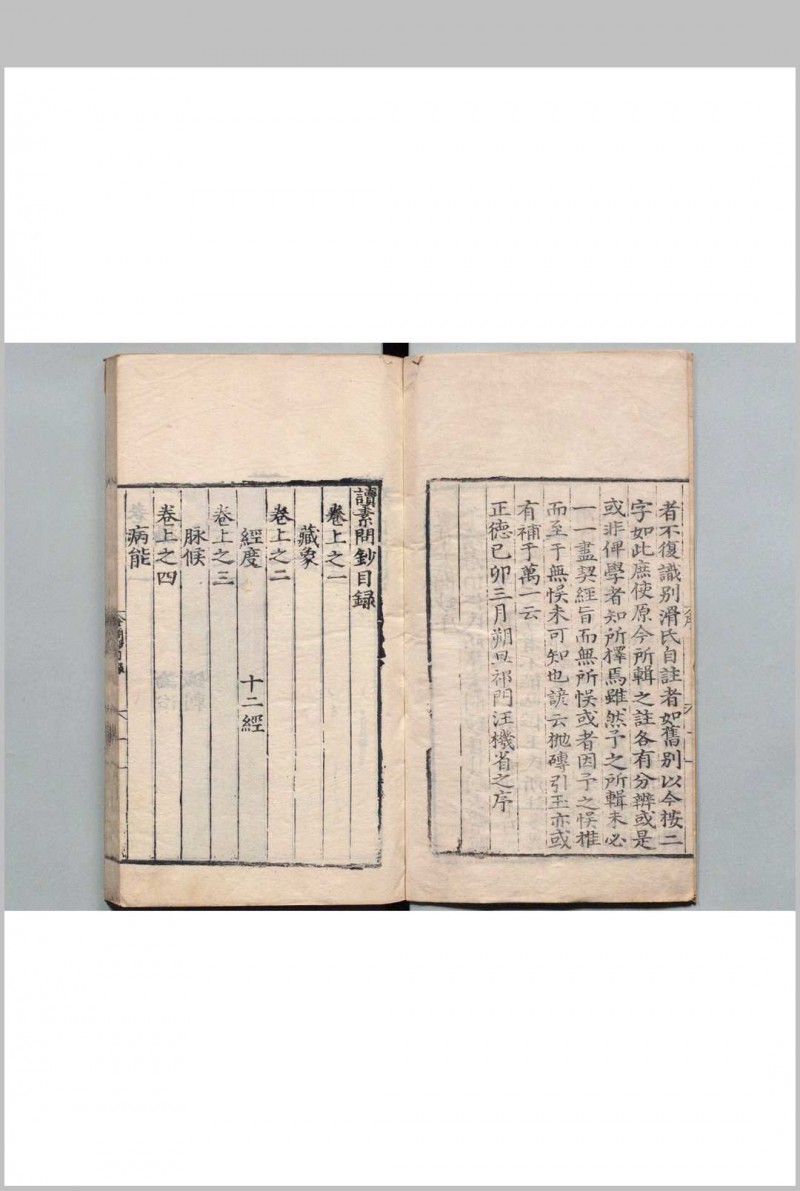 者不復識別滑氏自註者如舊別以今按二
字如此庶使原今所輯之註各有分辨或是
或非俾學者知所擇焉雖然予之所輯未必
一一盡契經旨而無所悞或者因予之悞推
而至于無悞未可知也諺云抛磚引玉亦或
有補于萬一云
正德己卯三月朔旦祁門汪機省之序
讀素問鈔目録
卷上之一
藏象
卷上之二
經度 十二經
卷上之三
脉候
卷上之四
病能